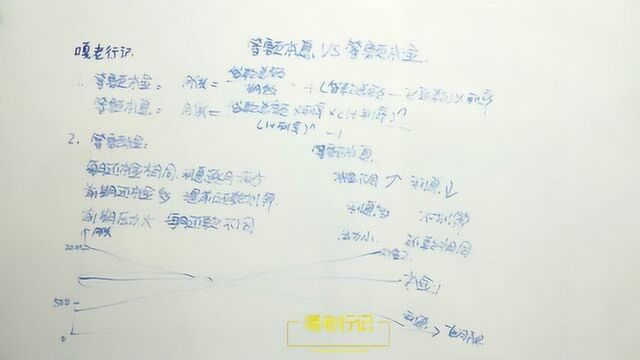 嘎老行记
等额本息 VS 等额本金
1. 等额本金: 月供 = 贷款总额 / 期数 + (贷款总额 - 已还款额) × 利率
等额本息: 月供 = 贷款总额 × 利率 × (1+利率)^n / (1+利率)^n - 1
2. 等额本金: 等额本息
每月还本金相同, 利息逐月 本金不同 ↑ 利息↓
前期还本金多 提前还款划算 利息多 不划算
前期压力大 每月还款不同 压力小 还款相同
↑月供
本金2
本金1
500
利息
0
嘎老行记